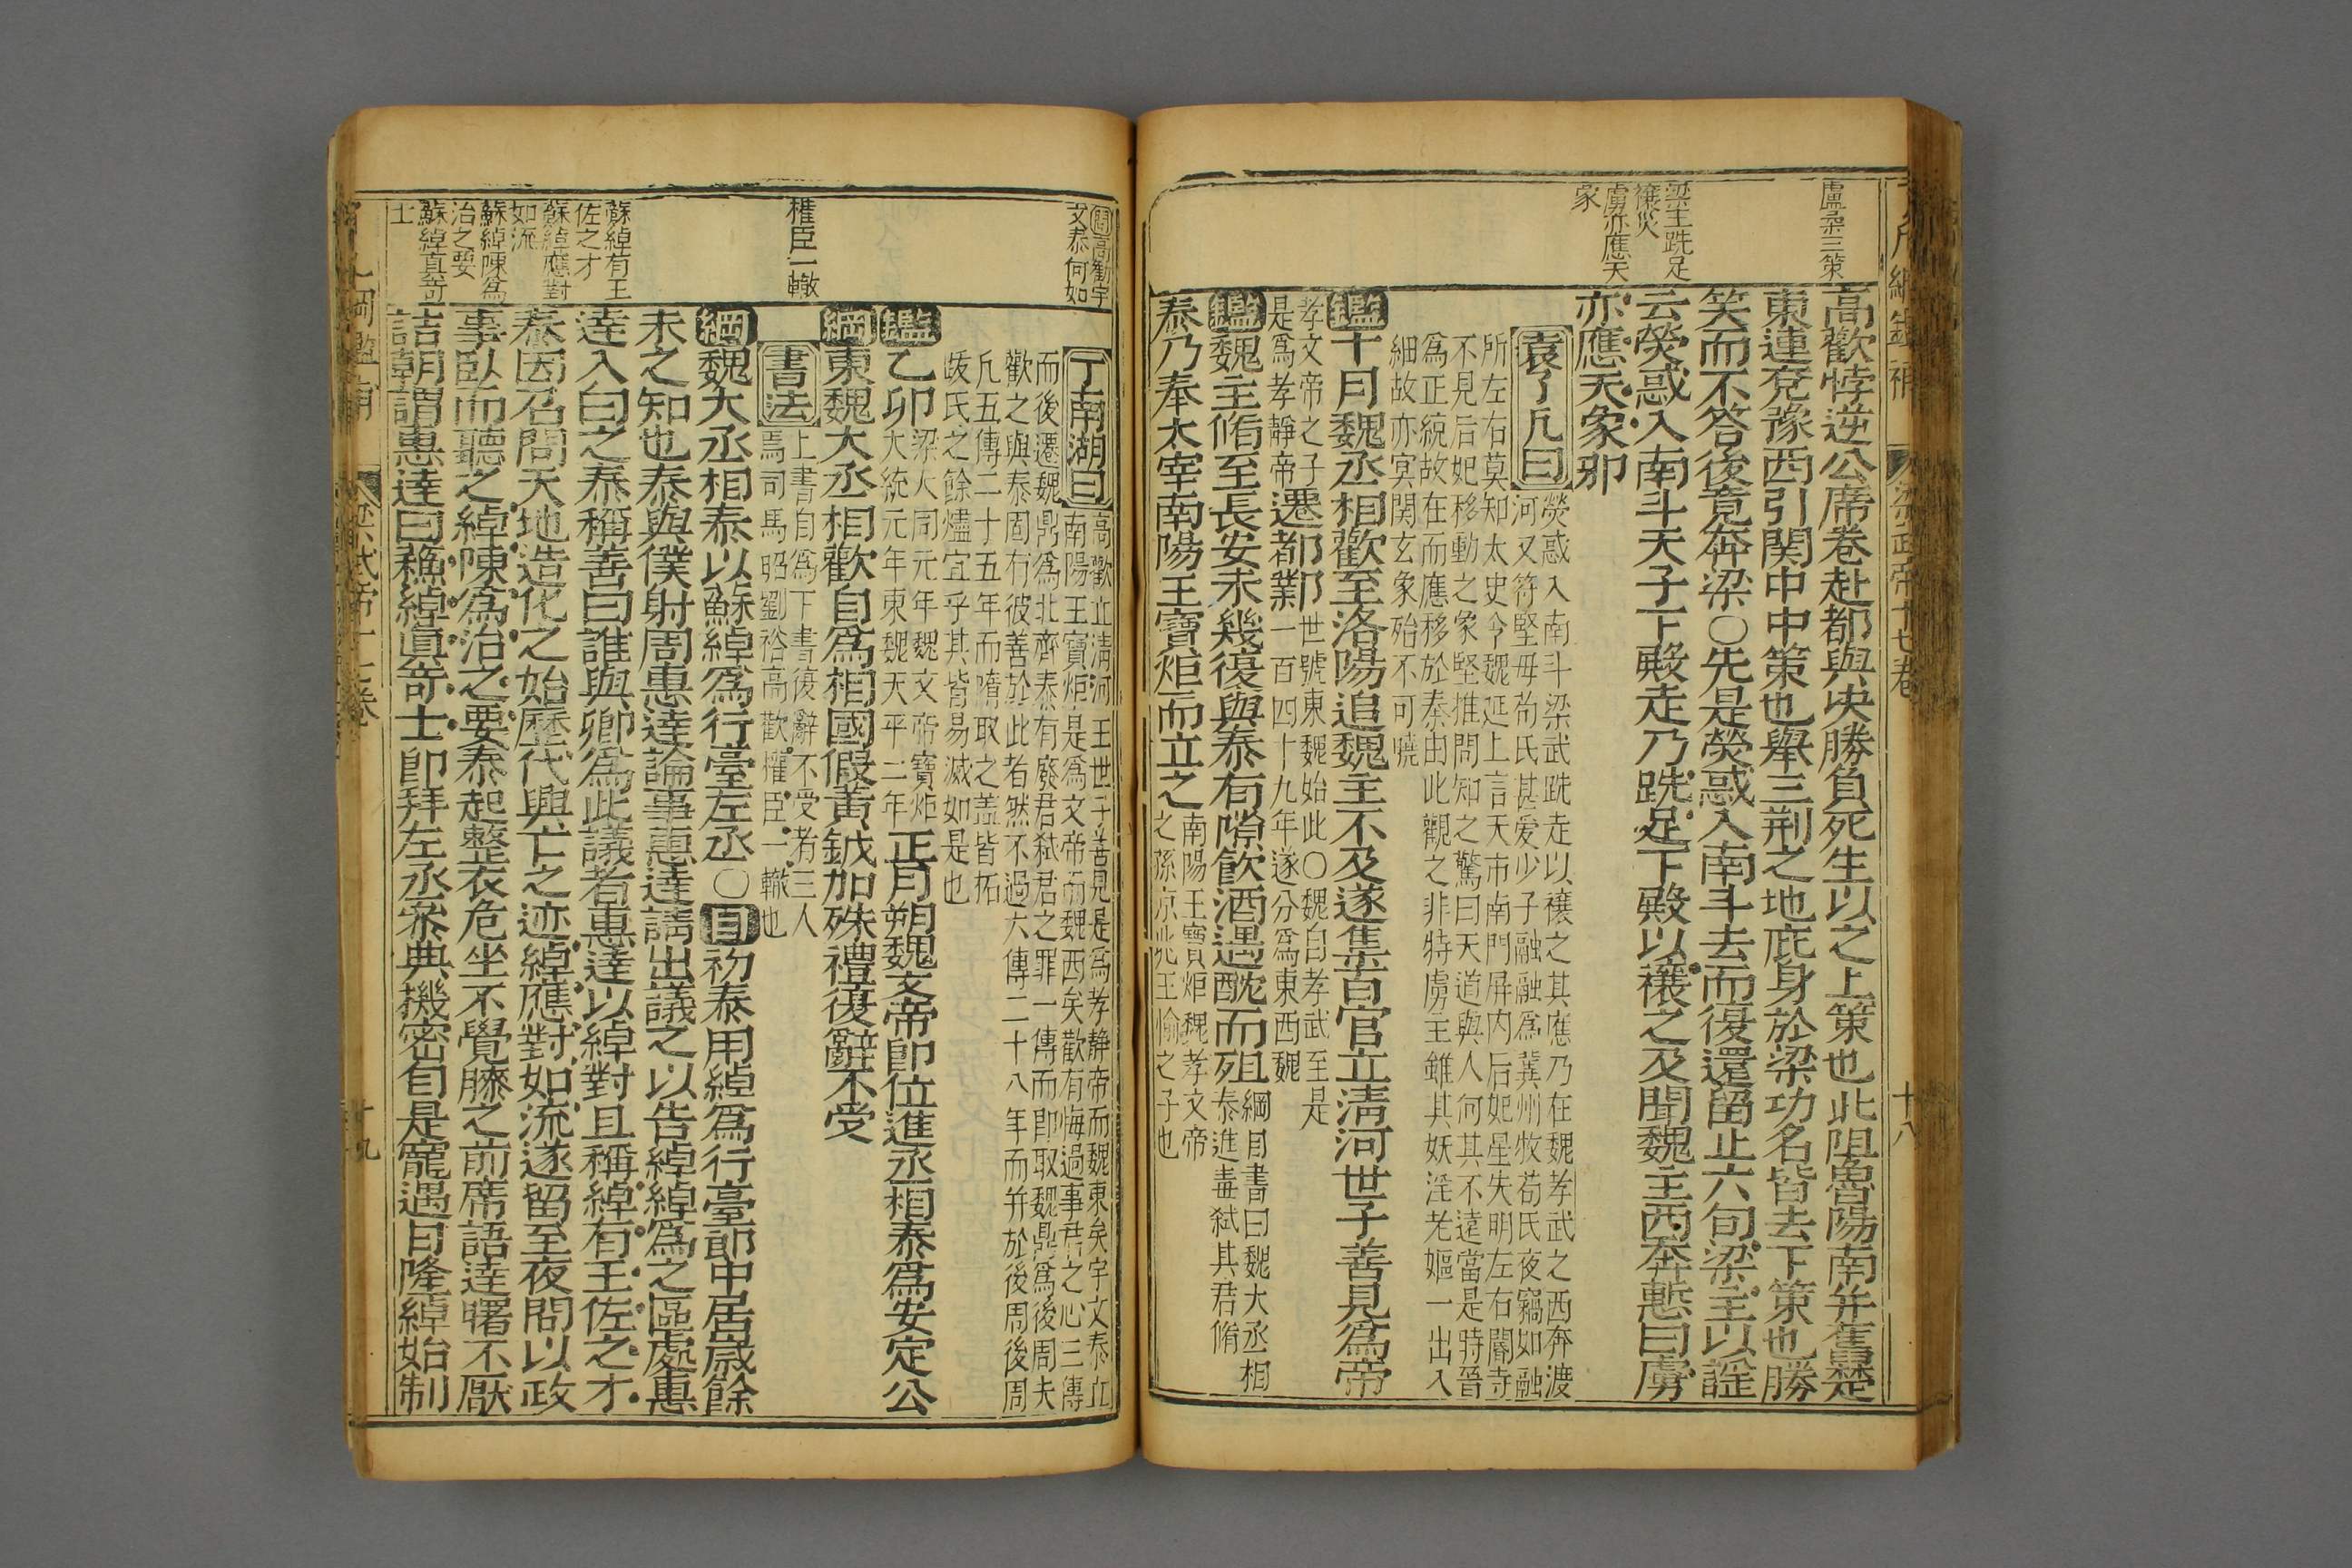 盧柔三策
梁王跣足
禳災
虜亦應天
象
梁武帝十七卷
十八
高歡悖逆公席卷赴都與决勝負死生以之上策也此阻魯陽南并舊楚
東連兗豫西引関中中策也舉三荊之地庇身於梁功名皆去下策也勝
笑而不答後竟奔梁〇先是熒惑入南斗去而復還留止六旬梁主以謡
云熒惑入南斗天子下殿走乃跣足下殿以禳之及聞魏主西奔慙曰虜
亦應天象邪
袁了凡曰
熒惑入南斗梁武跣走以禳之其應乃在魏孝武之西奔渡
河又符堅毋荀氏甚爱少子融融爲冀州牧荀氏夜竊如融
所左右莫知太史令魏延上言天市南門屏内后妃星失明左右閽寺
不見后妃移動之象堅推問知之驚曰天道與人何其不遠當是時晉
爲正統故在而應移於秦由此觀之非特虜主雖其妖淫老嫗一出入
細故亦㝠関玄象殆不可曉
鑑十月魏丞相歡至洛陽追魏主不及遂集百官立淸河世子善見爲帝
孝文帝之子世號東魏始此〇魏自孝武至是
是爲孝靜帝遷都鄴一百四十九年遂分爲東西魏
鑑魏主脩至長安未幾復與泰有隙飲酒遇酖而殂
綱目書曰魏大丞相
泰進毒弑其君脩
泰乃奉太宰南陽王寶炬而立之
南陽王寶炬魏孝文帝
之孫京兆王愉之子也
問高歡宇
文泰何如
權臣一轍
蘇綽有王
佐之才
蘇綽應對
如流
蘇綽陳爲
治之要
蘇綽真奇
士
丁南湖曰
高歡立淸河王世子善見是爲孝靜帝而魏東矣宇文泰立
南陽王寶炬是爲文帝而魏西矣歡有悔過事君之心三傳
而後遷魏鼎爲北齊泰有廢君弑君之罪一傳而即取魏鼎爲後周夫
歡之與泰固有彼善於此者然不過六傳二十八年而并於後周後周
凡五傳二十五年而隋取之盖皆拓
跋氏之餘燼宜乎其皆易滅如是也
鑑乙卯
梁大同元年魏文帝寶炬
大統元年東魏天平二年
正月朔魏文帝即位進丞相泰爲安定公
綱東魏大丞相歡自爲相國假黃鉞加殊禮復辭不受
書法
上書自爲下書復辭不受者三人
焉司馬昭劉裕高歡權臣一轍也
綱魏大丞相泰以蘇綽爲行臺左丞〇目初泰用綽爲行臺郎中居嵗餘
未之知也泰與僕射周惠達論事惠達請出議之以告綽綽爲之區處惠
達入白之泰稱善曰誰與卿爲此議者惠達以綽對且稱綽有王佐之才
泰因召問天地造化之始歷代興亡之迹綽應對如流遂留至夜問以政
事臥而聽之綽陳爲治之要泰起整衣危坐不覺膝之前席語達曙不厭
詰朝謂惠達曰蘓綽真奇士即拜左丞叅典機密自是寵遇日隆綽始制
十九